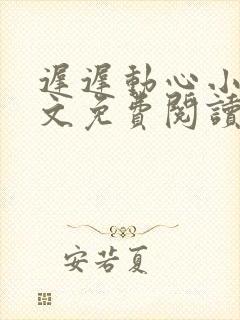 遲遲動心小
文免費閱讀
安若夏